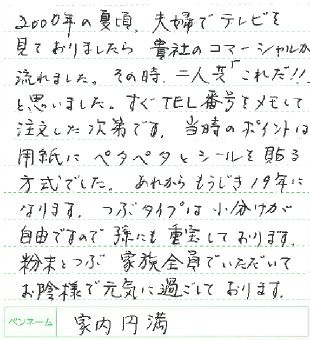 2000年の夏頃、夫婦でテレビを
見ておりましたら 貴社のコマーシャルが
流れました。その時、二人共「これだ!!」
と思いました。すぐTEL番号をメモして
注文した次第です。当時のポイントは
用紙にペタペタとシールを貼る
方式でした。あれからもうじき19年に
なります。つぶタイプは小分けが
自由ですので孫にも重宝しております。
粉末とつぶ 家族全員でいただいて
お陰様で元気に過ごしております。
ペンネーム 家内円満